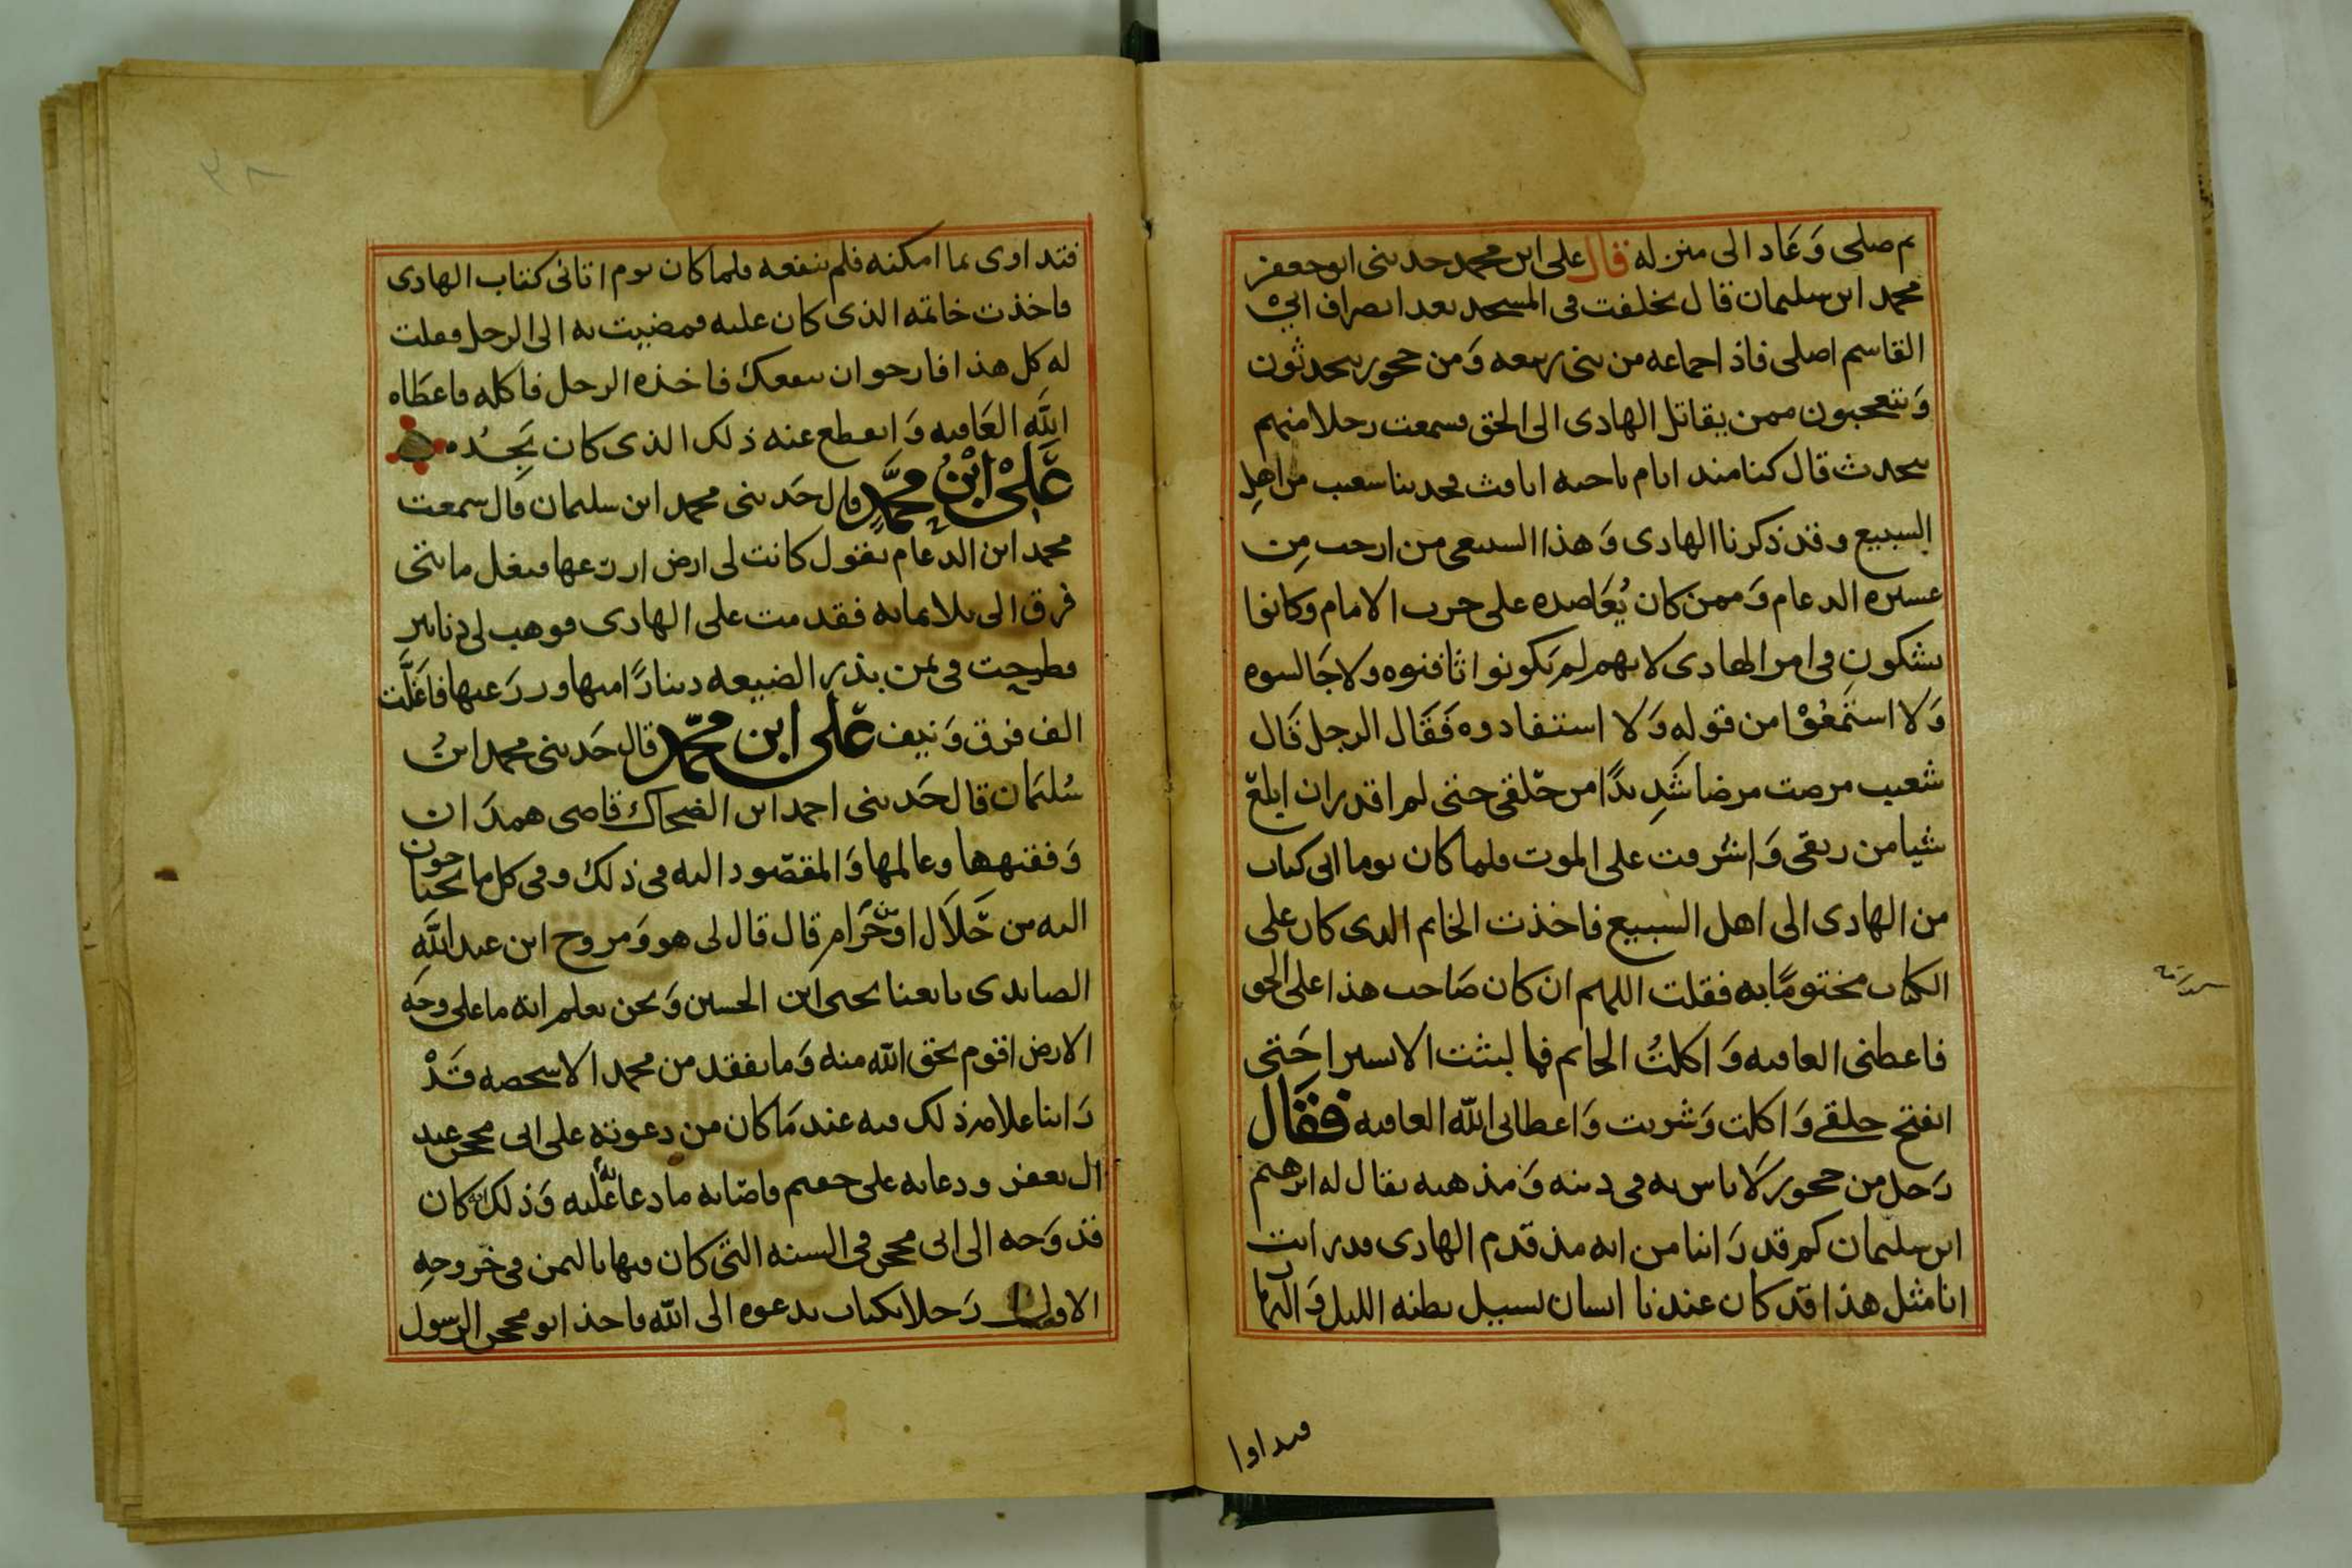 ثم صلى وَعَاد الى منزله قال على ابن محمد حدثنى ابو جعفر
محمد ابن سليمان قال تخلفت فى المسجد بعد انصراف ابى
القاسم اصلى فاذا جماعه من بنى ربيعه وَمن حجور يتحدثون
وَيتعجبون ممن يقاتل الهادى الى الحق فسمعت رجلا منهم
يتحدث قال كنا منذ ايام ناحيه اثافث فحدثنا شعيب من اهل
السبيع وقد ذكرنا الهادى وَهذا السبيعى من ارحب مِن
عشيره الدعام وَممن كان يُعَاضده على حرب الامام وكانوا
يشكون فى امر الهادى لانهم لم يَكونوا اثافنوه ولا جَالسوه
وَلا استمعُوْا من قوله وَلا استفادوه فَقَال الرجل قَال
شعيب مرضت مرضا شَدِيدًا من حَلقى حتى لم اقدر ان ابلع
شيا من ريقى وَاشرفت على الموت فلما كان يوما اتى كتاب
من الهادى الى اهل السبيع فاخذت الخاتم الذى كان على
الكتاب مختومًا به فقلت اللهم ان كان صَاحب هذا على الحق
فاعطنى العافيه وَاكلتُ الخاتم فما لبثت الا يسيرا حَتى
انفتح حلقى وَاكلت وَشربت وَاعطانى الله العافيه فقَال
رَجل من حجور لَا باس به فى دينه وَمذهبه يقال له ابرهيم
ابن سليمان كم قد رَاينا من ايه مذ قدم الهادى قد رايت
انا مثل هذا قد كان عندنا انسان يسيل بطنه الليل وَالنهار
فتداوا
فتداوى بما امكنه فلم ينفعه فلما كان يوم اتانى كتاب الهادى
فاخذت خاتمه الذى كان عليه فمضيت به الى الرجل فقلت
له كل هذا فارجوا ان ينفعك فاخذه الرجل فاكله فاعطَاه
اللَّه العَافيه وَانقطع عنه ذلك الذى كان يَجِدُه
عَلى ابْن محمَّد قال حَدثنى محمد ابن سليمان قال سمعت
محمد ابن الدعام يقول كانت لى ارض ازرعها فيغل مايتى
فرق الى ثلاثمايه فقدمت على الهادى فوهب لى دنانير
فطرحت فى ثمن بذر الضيعه دينارًا منها وزرَعتها فاَغَلَّت
الف فرق وَنيف عَلى ابن محمّد قال حَدثنى محمد ابنُ
سُليمَان قال حَدثنى احمد ابن الضحاك قاضى همدَان
وَفقيهها وعالمها وَالمقصود اليه فى ذلك وفى كل ما يحتاجون
اليه من حَلَال اوْ حَرَام قال قال لى هو وَمروح ابن عبد اللَّهِ
الصايدى بايعنا يحيى ابن الحسين وَنحن نعلم انه ما على وجه
الارض اقوم بحق الله منه وَما يفقد من محمد الا شخصه قَدْ
رَاينا علامه ذلك فيه عند مَا كان من دعوته على ابى محجن عبد
ال يعفر ودعايه على جعتم فاصَابه ما دعا الله عَليه وَذلك انه كان
قد وَجه الى ابى محجن فى السنه التى كان فيها باليمن فى خروجِهِ
الاول رَجلا بكتاب يدعوه الى الله فاخذ ابو محجن الرسول